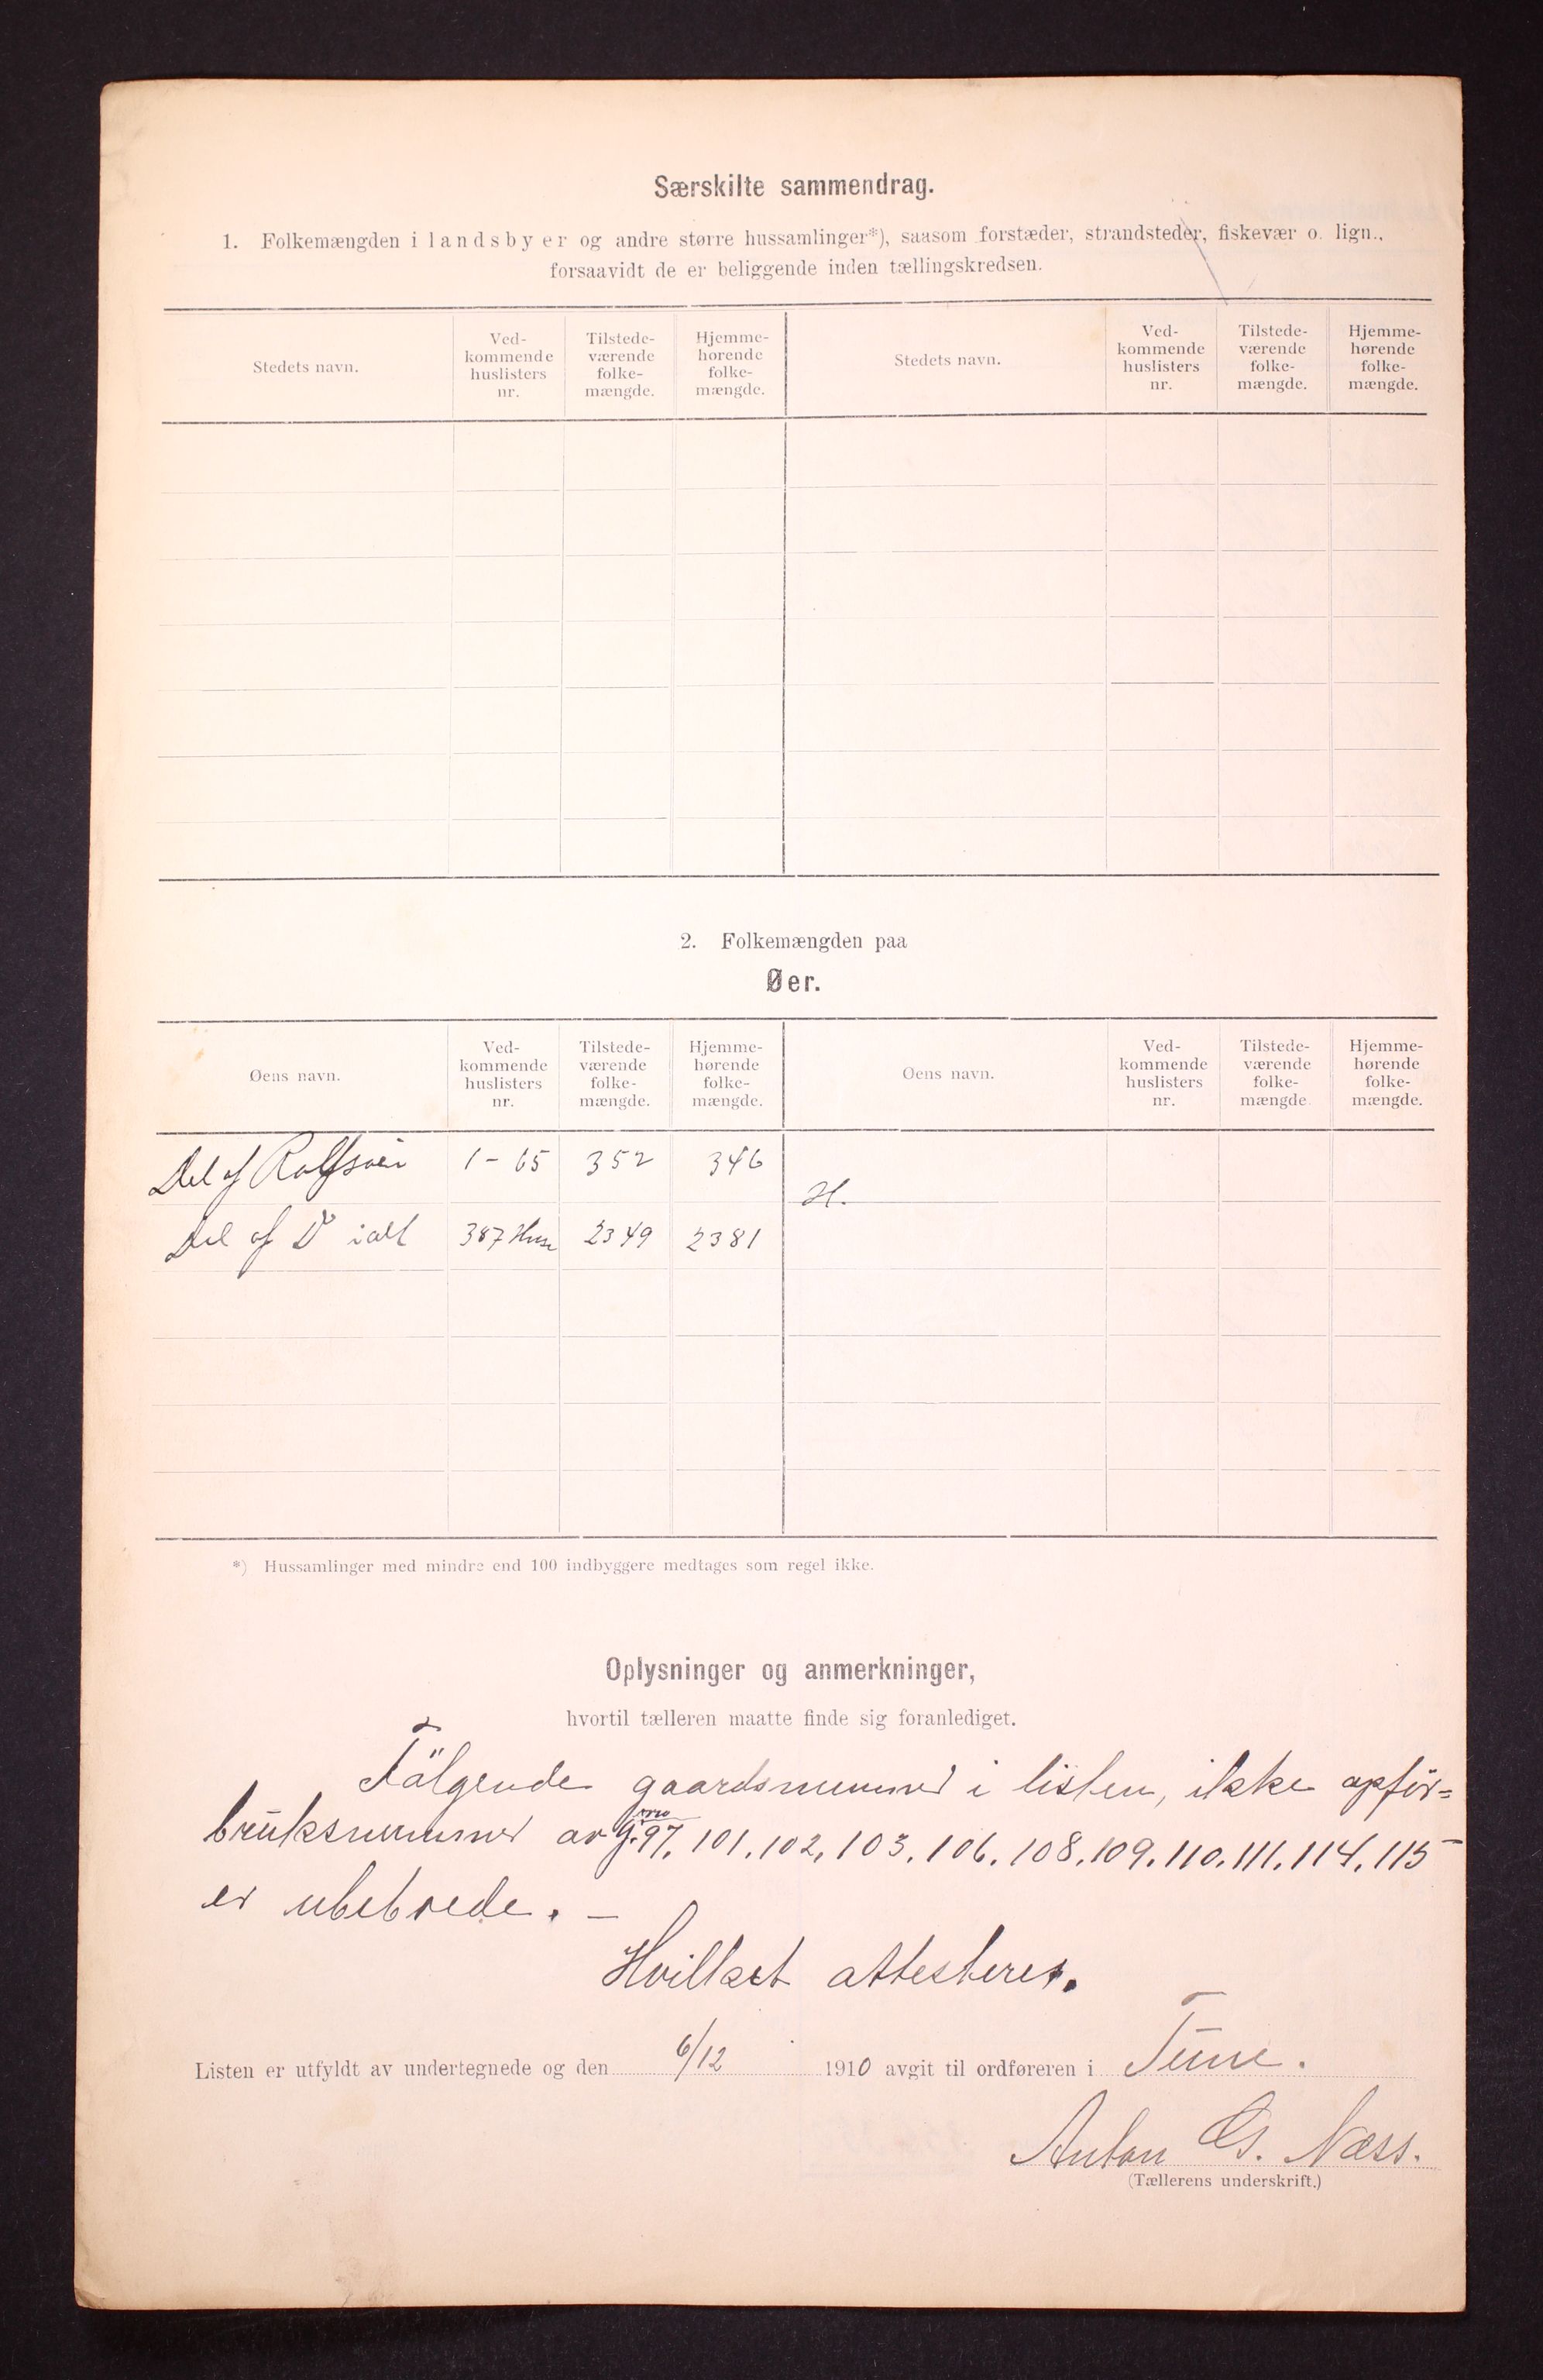 Særskilte sammendrag.
1. Folkemængden i landsbyer og andre større hussamlinger*), saasom forstæder, strandsteder, fiskevær o. lign.,
forsaavidt de er beliggende inden tællingskredsen.
Stedets navn. Ved-kommende huslisters nr. Tilstede-værende folke-mængde. Hjemme-hørende folke-mængde. Stedets navn. Ved-kommende huslisters nr. Tilstede-værende folke-mængde. Hjemme-hørende folke-mængde.
2. Folkemængden paa
Øer.
Øens navn. Ved-kommende huslisters nr. Tilstede-værende folke-mængde. Hjemme-hørende folke-mængde. Øens navn. Ved-kommende huslisters nr. Tilstede-værende folke-mængde Hjemme-hørende folke-mængde.
Del af Rolfsøen 1-65 352 346
H.
Del af Do ialt 387 Huse 2349 2381
*) Hussamlinger med mindre end 100 indbyggere medtages som regel ikke.
Oplysninger og anmerkninger,
hvortil tælleren maatte finde sig foranlediget.
Fölgende gaardsnummer i listen, ikke opför=
bruksnummer av g.no 97. 101. 102. 103. 106. 108. 109. 110. 111. 114. 115
er ubeboede. —
Hvilket attesteres.
Listen er utfyldt av undertegnede og den 6/12 1910 avgit til ordføreren i Tune.
Anton Næss.
(Tællerens underskrift.)